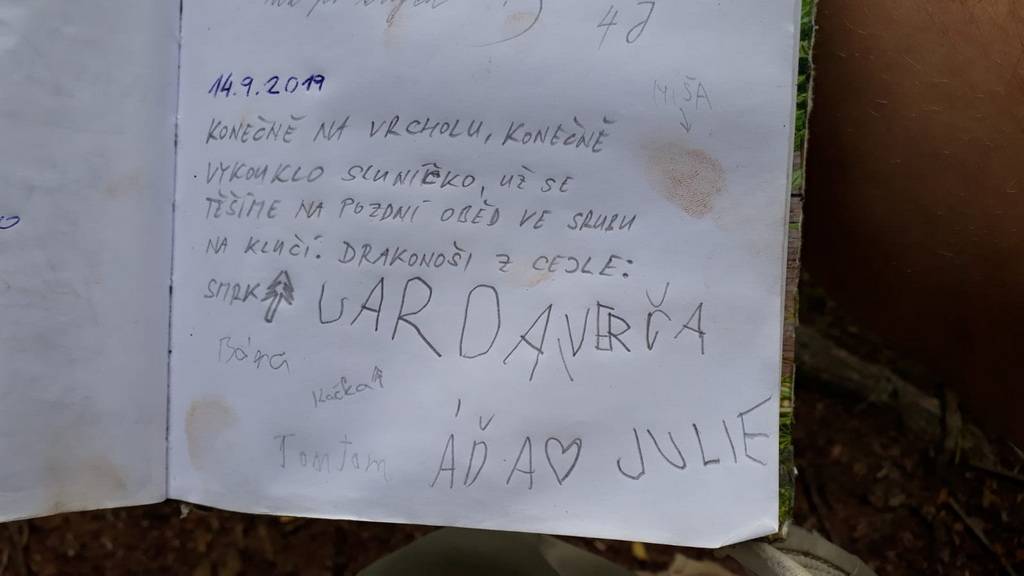 4D
14.9.2019
MÍŠA
KONEČNĚ NA VRCHOLU, KONEČNĚ
VYKOUKLO SLUNÍČKO, UŽ SE
TĚŠÍME NA POZDNÍ OBĚD VE SRUBU
NA KLUČÍ. DRAKONOŠI Z CEJLE:
SMRK
VERČA
Bára
Káčka
TomTom
ÁĎA JULIE